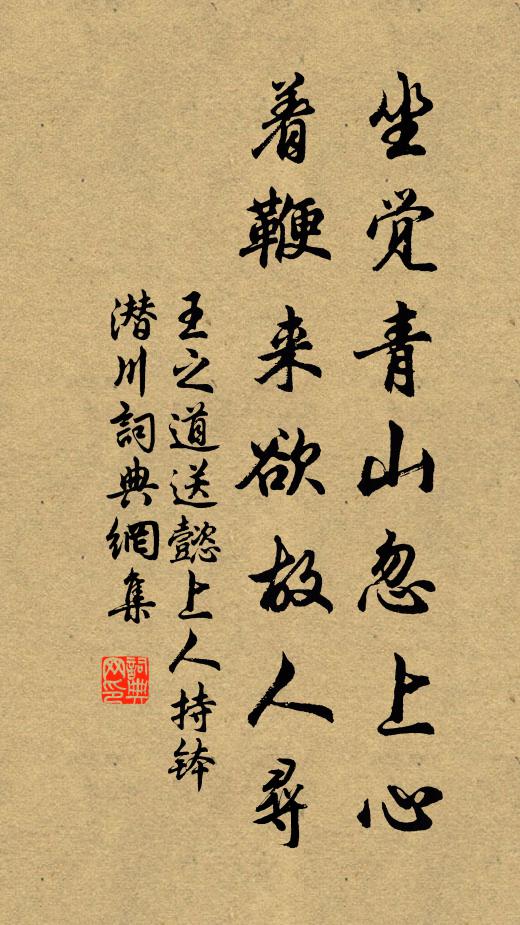 坐觉青山忽上心
着鞭来欲故人尋
王之道送懿上人持钵
潜川詞典網集
詞典网印